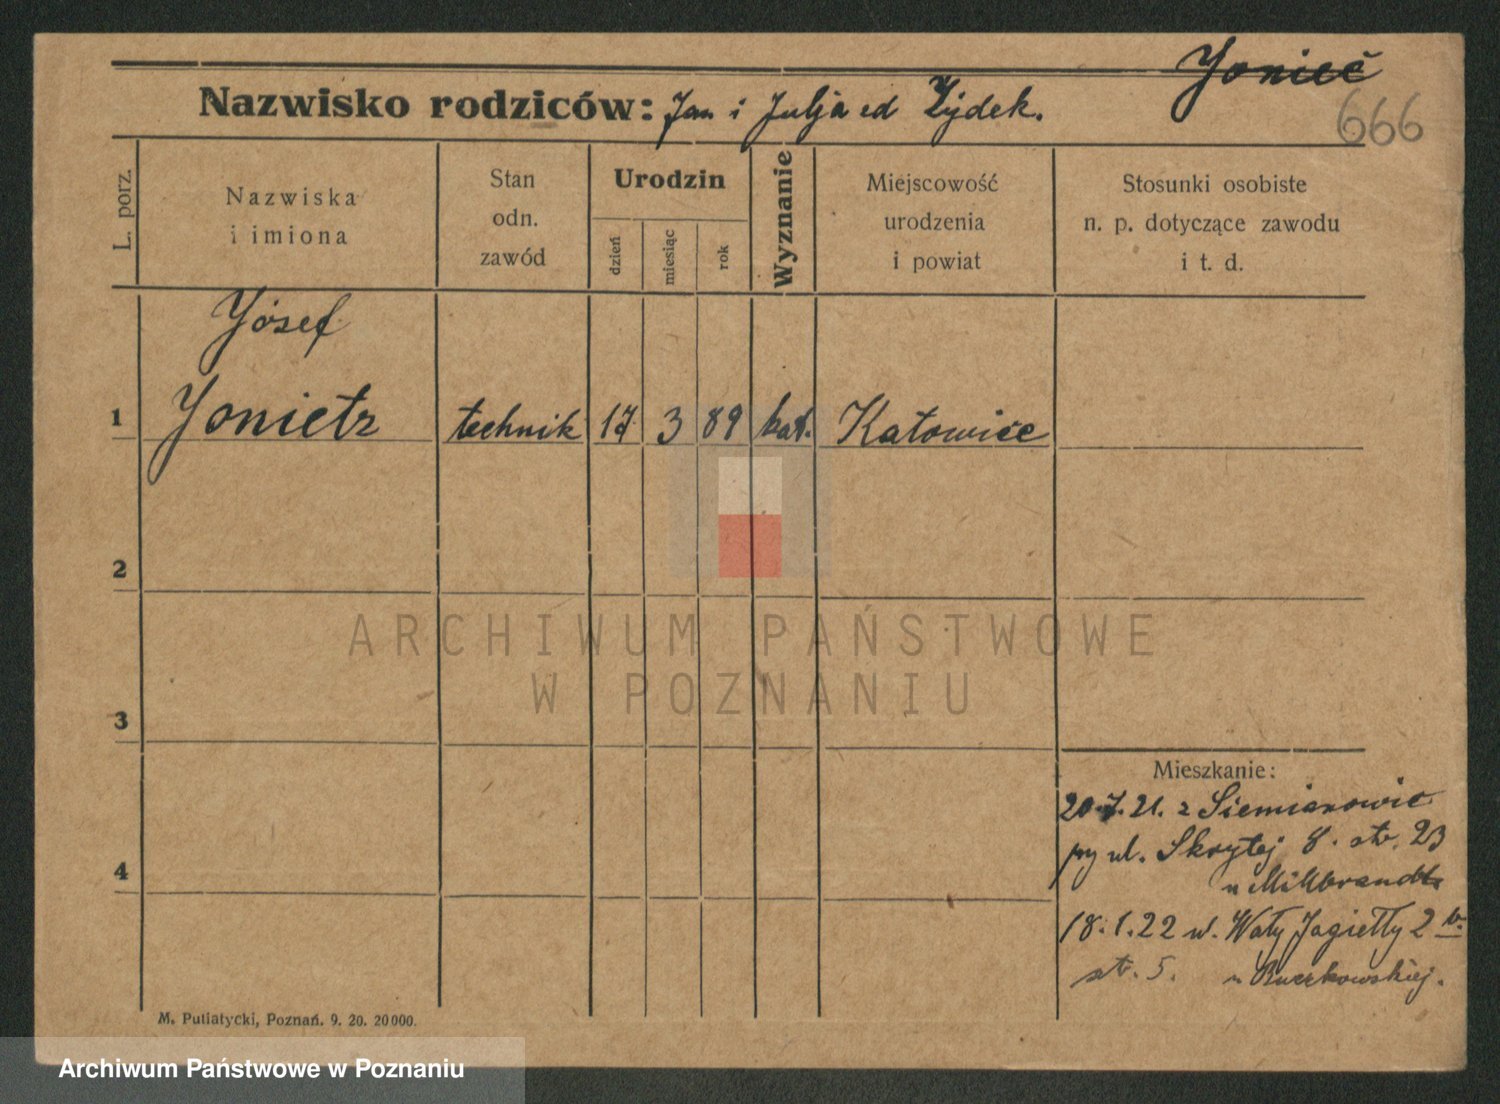 Yonieć
666
Nazwisko rodziców: Jan i Julja od Zydek.
L. porz.
Nazwiska
i imiona
Stan
odn.
zawód
Urodzin
dzień
miesiąc
rok
Wyznanie
Miejscowość
urodzenia
i powiat
Stosunki osobiste
n. p. dotyczące zawodu
i t. d.
Yósef
1 Yonietz technik 17 3 89 kat. Katowice
2
3
4
ARCHIWUM PAŃSTWOWE
W POZNANIU
Mieszkanie:
20.7.21. z Siemianowic
ul. Skrytej 8. str. 23
u Millbrandta
18.1.22 ul. Wały Jagiełły 2
str. 5. u Buczkowskiej.
M. Putiatycki, Poznań. 9. 20. 20000.
Archiwum Państwowe w Poznaniu